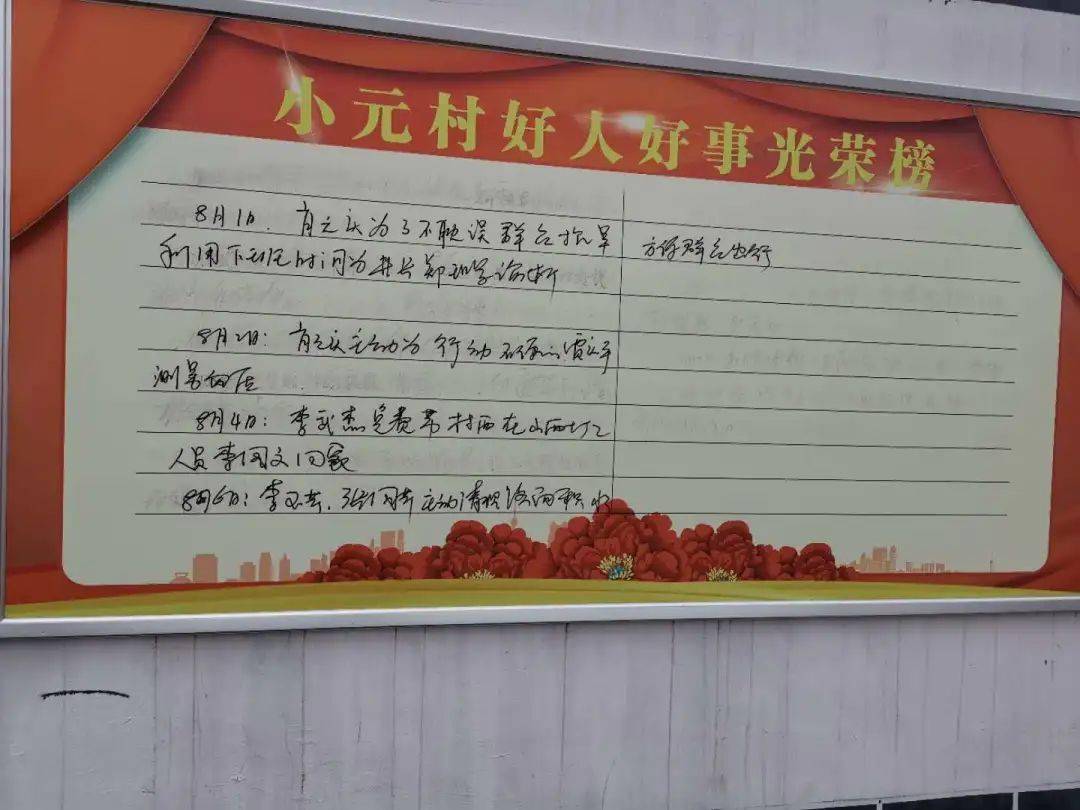 小元村好人好事光荣榜
8月1日，肖之庆为了不耽误群众抗旱
利用下班时间为井长郑
8月2日：肖之庆主动为行动不便
测量血压
8月4日：李武杰免费帮村西在山西打工
人员李国文回家
8月6日：李，张同主动清积路面积水
方便群众出行